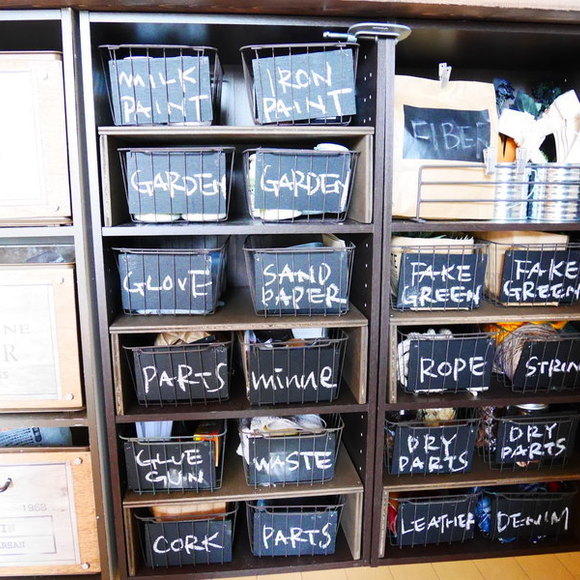 MILK
PAINT
IRON
PAINT
GARDEN
GARDEN
GLOVE
SAND
PAPER
PARTS
minne
GLUE
GUN
WASTE
CORK
PARTS
FIBER
FAKE
GREEN
FAKE
GREEN
ROPE
STRIN
DRY
PARTS
DRY
PARTS
LEATHER
DENIM
NE
R
1968
IN